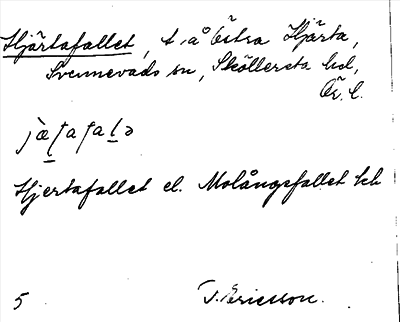 Hjärtafallet, t. å Östra Hjärta,
Svennevads sn, Sköllersta hd,
Ör. l.
Hjertafallet el. Molångsfallet kb
5 T. Ericsson.